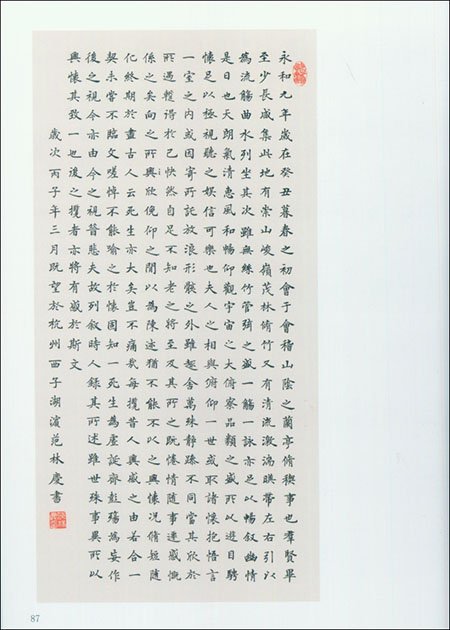 永和九年歲在癸丑暮春之初會于會稽山陰之蘭亭脩稧事也羣賢畢
至少長咸集此地有崇山峻嶺茂林脩竹又有清流激湍暎帶左右引以
為流觴曲水列坐其次雖無絲竹管弦之盛一觴一詠亦足以暢叙幽情
是日也天朗氣清惠風和暢仰觀宇宙之大俯察品類之盛所以遊目騁
懷足以極視聽之娛信可樂也夫人之相與俯仰一世或取諸懷抱悟言
一室之內或因寄所託放浪形骸之外雖趣舍萬殊靜躁不同當其欣於
所遇蹔得於己快然自足不知老之將至及其所之既惓情隨事遷感慨
係之矣向之所欣俛仰之間以為陳迹猶不能不以之興懷況脩短隨
化終期於盡古人云死生亦大矣豈不痛哉每攬昔人興感之由若合一
契未嘗不臨文嗟悼不能喻之於懷固知一死生為虛誕齊彭殤為妄作
後之視今亦由今之視昔悲夫故列叙時人錄其所述雖世殊事異所以
興懷其致一也後之攬者亦將有感於斯文
歲次丙子年三月既望於杭州西子湖濱范林慶書
87